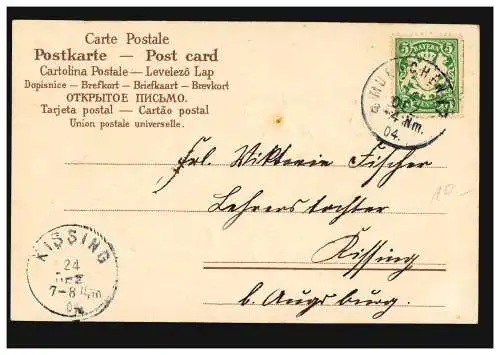 Carte Postale
Postkarte — Post card
Cartolina Postale — Levelező Lap
Dopisnice — Brefkort — Briefkaart — Brevkort
ОТКРЫТОЕ ПИСЬМО.
Tarjeta postal — Cartão postal
Union postale universelle.
5 BAYERN 5
MÜNCHEN
4-5 Nm.
04.
Frl. Viktorie Fischer
Lehrerstochter
Kissing
b. Augsburg.
KISSING
24
DEZ
7-8
04
10.-